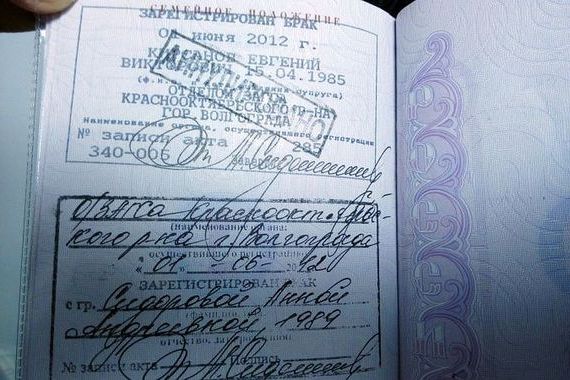 СЕМЕЙНОЕ ПОЛОЖЕНИЕ
ЗАРЕГИСТРИРОВАН БРАК
ИЮНЯ 2012 Г.
ЕВГЕНИЙ
15.04.1985
КРАСНООКТЯБРЬСКОГО Р-НА
ГОР. ВОЛГОГРАДА
Наименование органа, осуществившего регистрацию
№ записи акта 285
340-006
О/ЗАГСа Краснооктябрьс-
кого р-на г. Волгограда
(наименование органа,
осуществившего регистрацию)
"01" 06
ЗАРЕГИСТРИРОВАН БРАК
с гр. Сидоровой Анной
Андреевной, 1989
№ записи акта Подпись